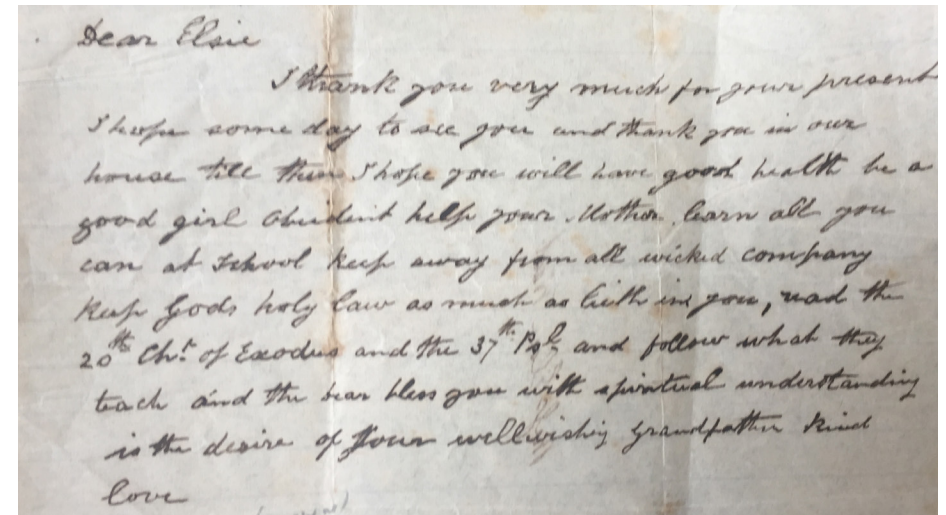 Dear Elsie
I thank you very much for your present
I hope some day to see you and thank you in our
house till then I hope you will have good health be a
good girl Obeidint help your Mother learn all you
can at School keep away from all wicked company
Keep Gods holy law as much as lieth in you, read the
20th Chr. of Exodus and the 37th Psl, and follow what they
teach and the bless you with spiritual understanding
is the desire of your wellwishing Grandfather Kind
love